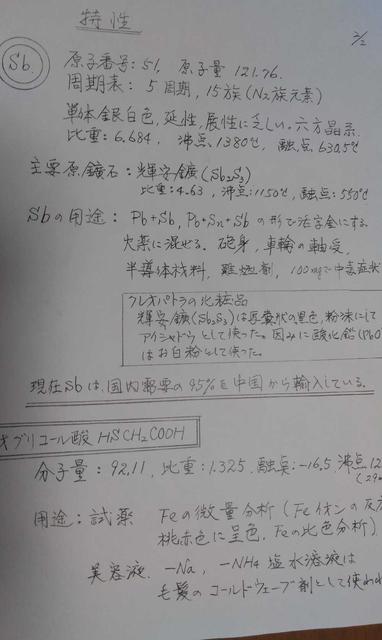 特性
2/2
Sb.
原子番号:51, 原子量 121.76.
周期表: 5周期, 15族(N2族元素)
単体銀白色, 延性, 展性に乏しい。六方晶系.
比重: 6.684, 沸点 1380℃, 融点 630.5℃
主要原鉱石: 輝安鉱(Sb2S3)
比重: 4.63, 沸点: 1150℃, 融点: 550℃
Sbの用途: Pb+Sb, Pb+Sn+Sb の形で活字金にする
火薬に混ぜる. 砲身, 車輪の軸受,
半導体材料, 難燃剤, 100mgで中毒症状
クレオパトラの化粧品
輝安鉱(Sb2S3)は 状の黒色, 粉沫にして
アイシャドウとして使った。因みに酸化鉛(PbO
はお白粉として使った。
現在Sbは, 国内需要の95%を中国から輸入している。
オグリコール酸 HSCH2COOH
分子量: 92.11, 比重: 1.325, 融点: -16.5, 沸点 12
用途: 試薬 Feの微量分析(Feイオンの反
桃赤色に呈色, Feの比色分析)
美容液. -Na, -NH4 塩水溶液は
毛髪のコールドウェーブ剤として使われ